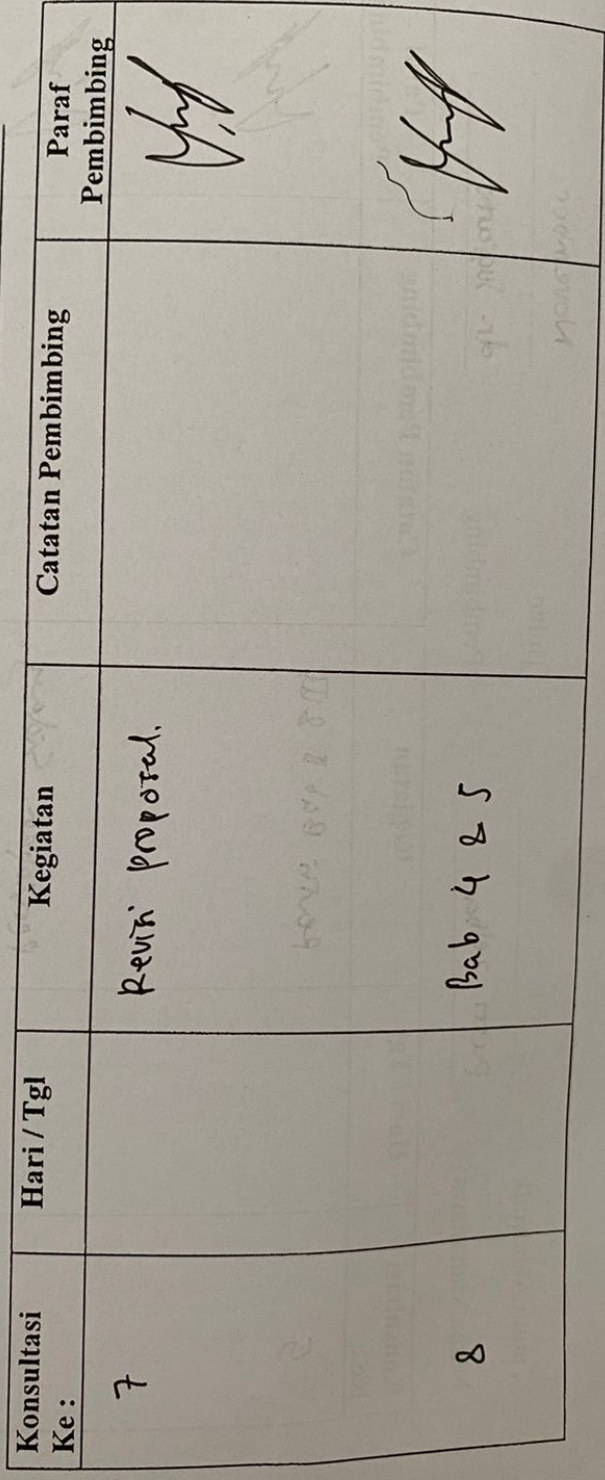 Konsultasi Ke : Hari / Tgl Kegiatan Catatan Pembimbing Paraf Pembimbing
7 Revisi proposal.
8 Bab 4 & 5